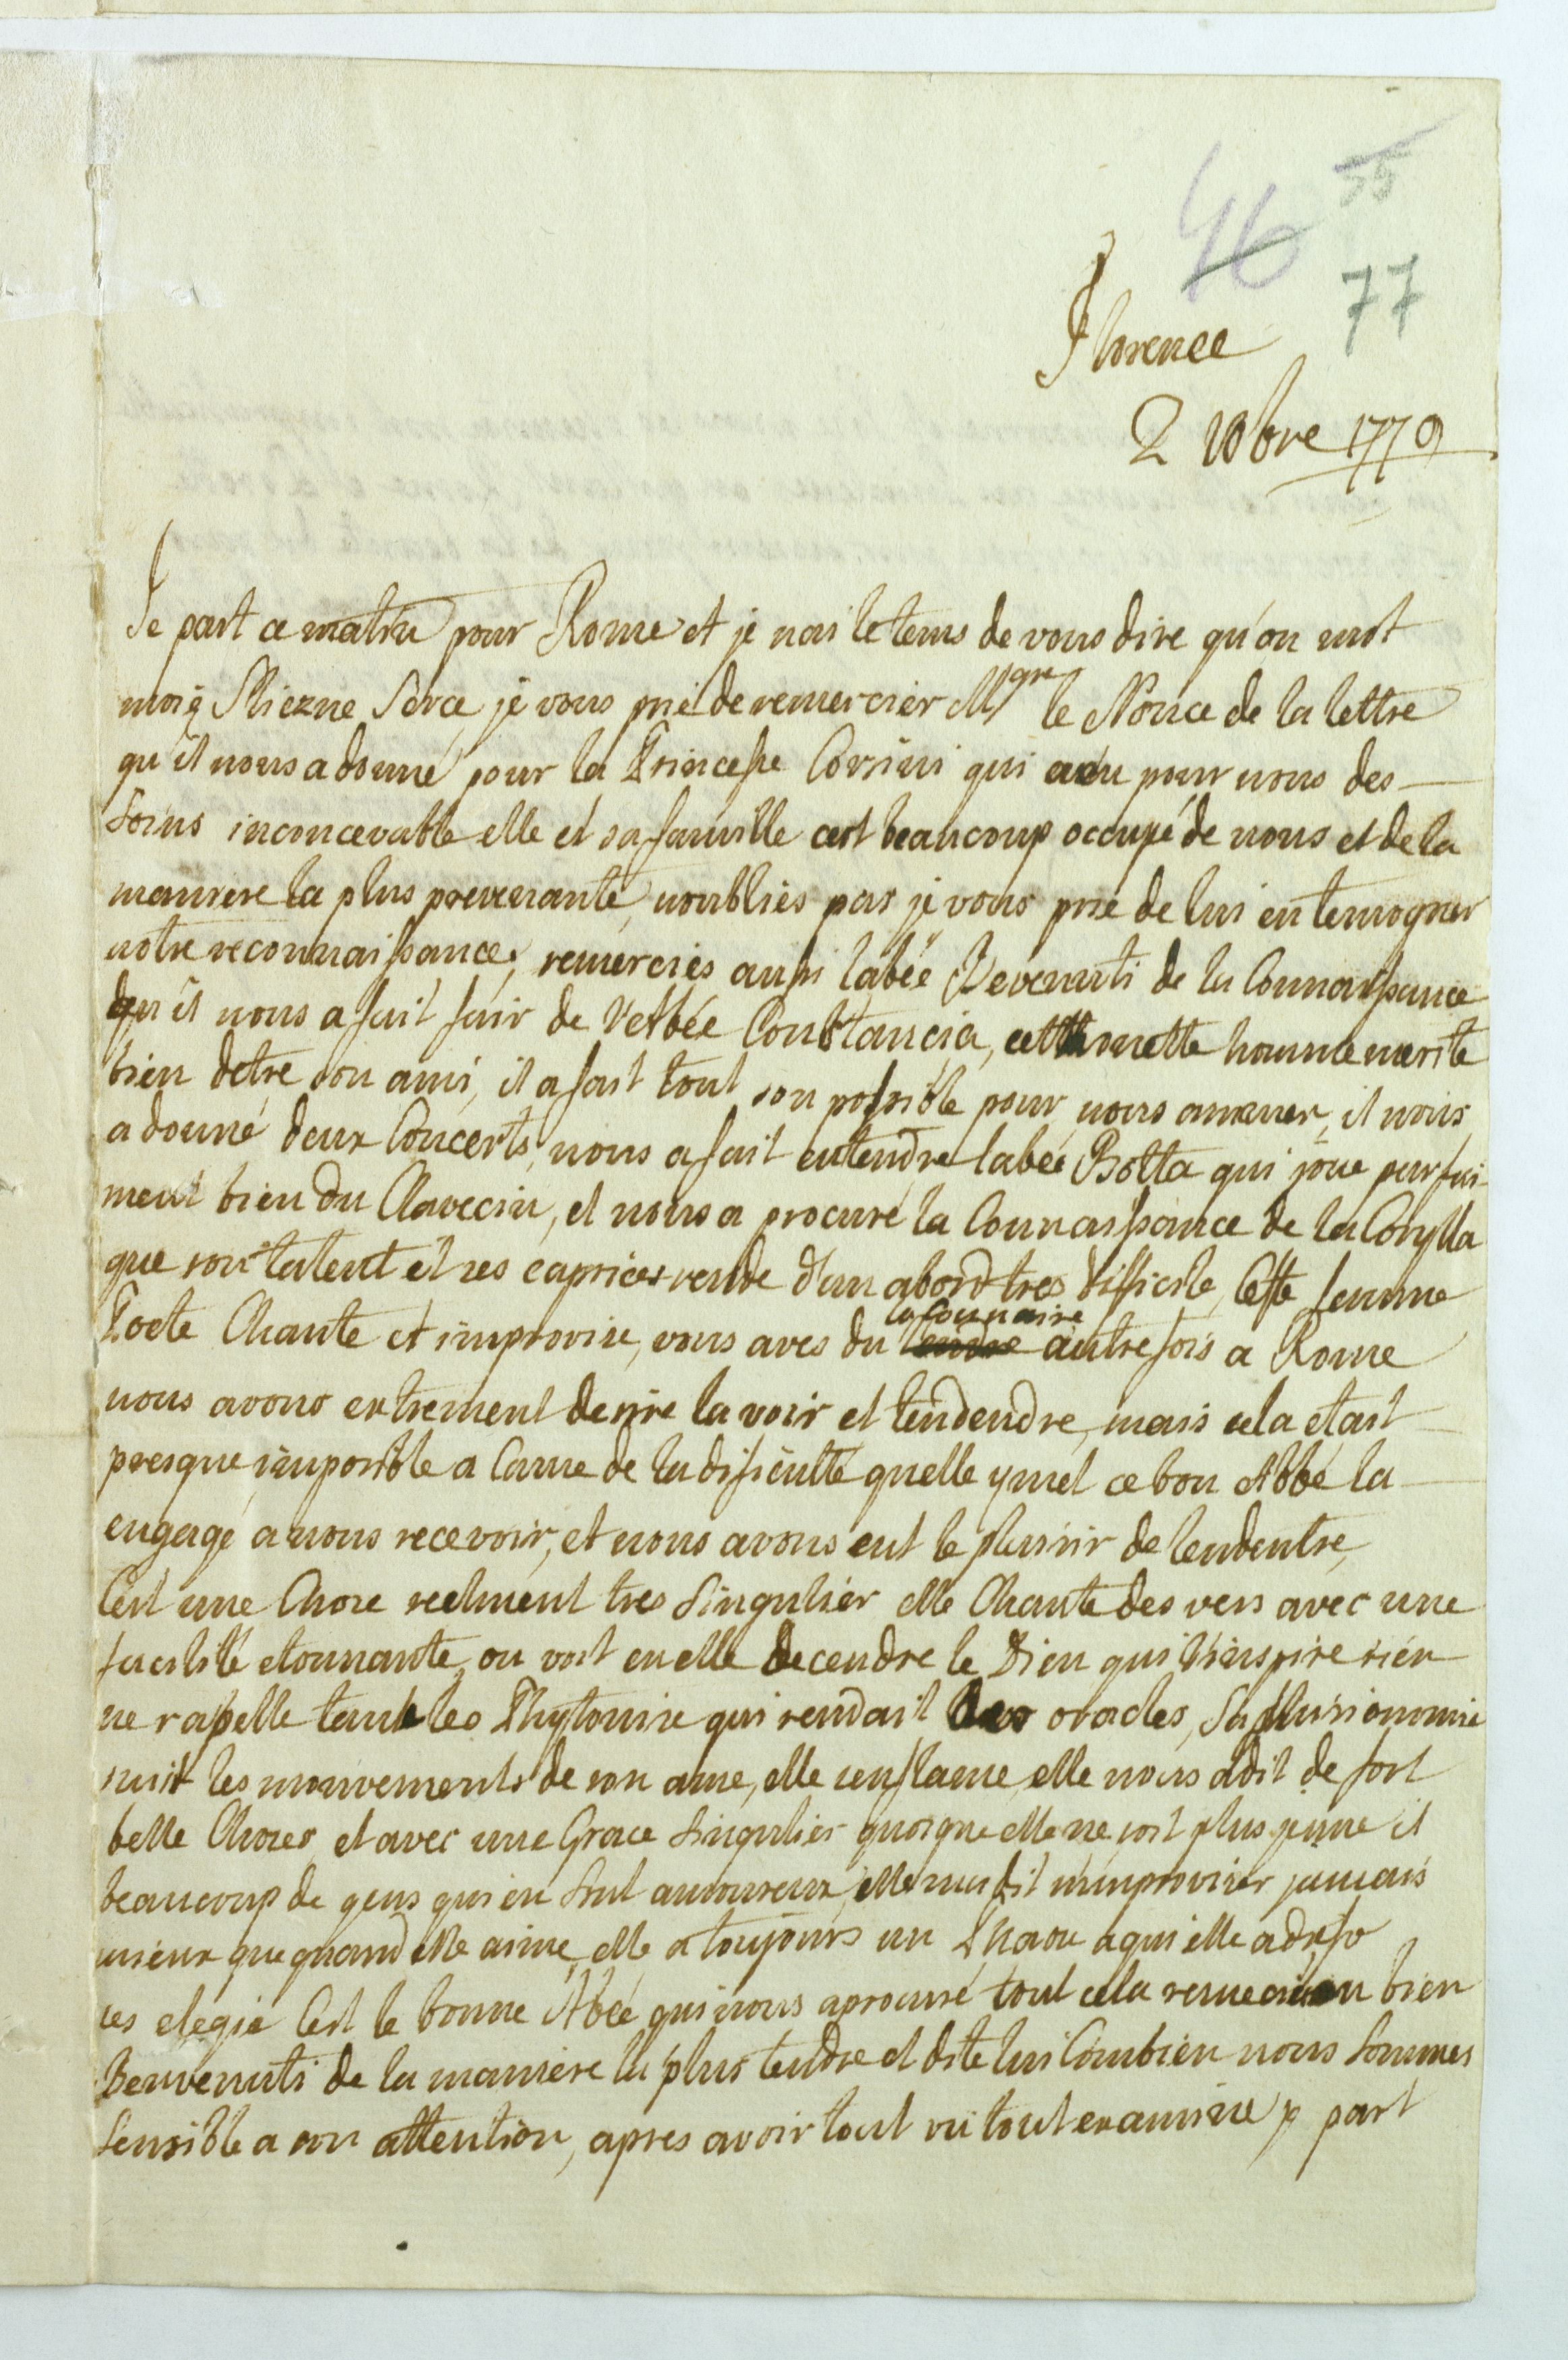 46 55
77
Florence
2 10bre 1779
Je part ce matin pour Rome et je nai le tems de vous dire qu'on mot
moie Sliczne Serce, je vous prie de remercier Mgr le Nonce de la lettre
qu'il nous a donné pour la Princesse Corsini qui a eu pour nous des
soins inconcevable elle et sa famille cest beaucoup occupé de nous et de la
maniere la plus prevenante, noubliés pas je vous prie de lui en temogner
notre reconnaissance, remerciés aussi labée Bevenuti de la Connaissance
qu'il nous a fait fair de l'etbée Constancia, cett honette homme merite
bien detre son ami, il a fait tout son possible pour nous amuser, il nous
a donné deux Concerts, nous a fait entendre labée Botta qui joue parfai-
ment bien du Clavecin, et nous a procuré la Connaissance de la Corylla
que son talent et ses caprices rende d'un abord tres difficile, Cette femme
Poete Chante et improvise, vous aves du la Connaire autre fois a Rome
nous avons extrement desire la voir et lendendre, mais cela etait
presque imposible a Cause de la dificulté quelle y met ce bon Abbé la
engagé a nous recevoir, et nous avons eut le plaisir de lendentre,
Cest une Chose reelment tres Singulier elle Chante des vers avec une
facilité etonnante, on voit en elle decendre le Dieu qui l'inspire rien
ne rapelle tant les Phytonise qui rendait des oracles, Sa phisionomie
suit les mouvements de son ame, elle cenflame, elle nous a dit de fort
belle Choses et avec une Grace Singulier quoique elle ne soit plus jeune il
beaucoup de gens qui en Sont amoureux, elle nus dit n'improviser jamais
mieux que quand elle aime, elle a toujours un Phaon a qui elle adresse
ces elegie Cest le bonne Abée qui nous a procuré tout cela remercie en bien
Benvenuti de la maniere la plus tendre et dite lui Combien nous Sommes
Sensible a son attention, apres avoir tout vu tout examiné je part